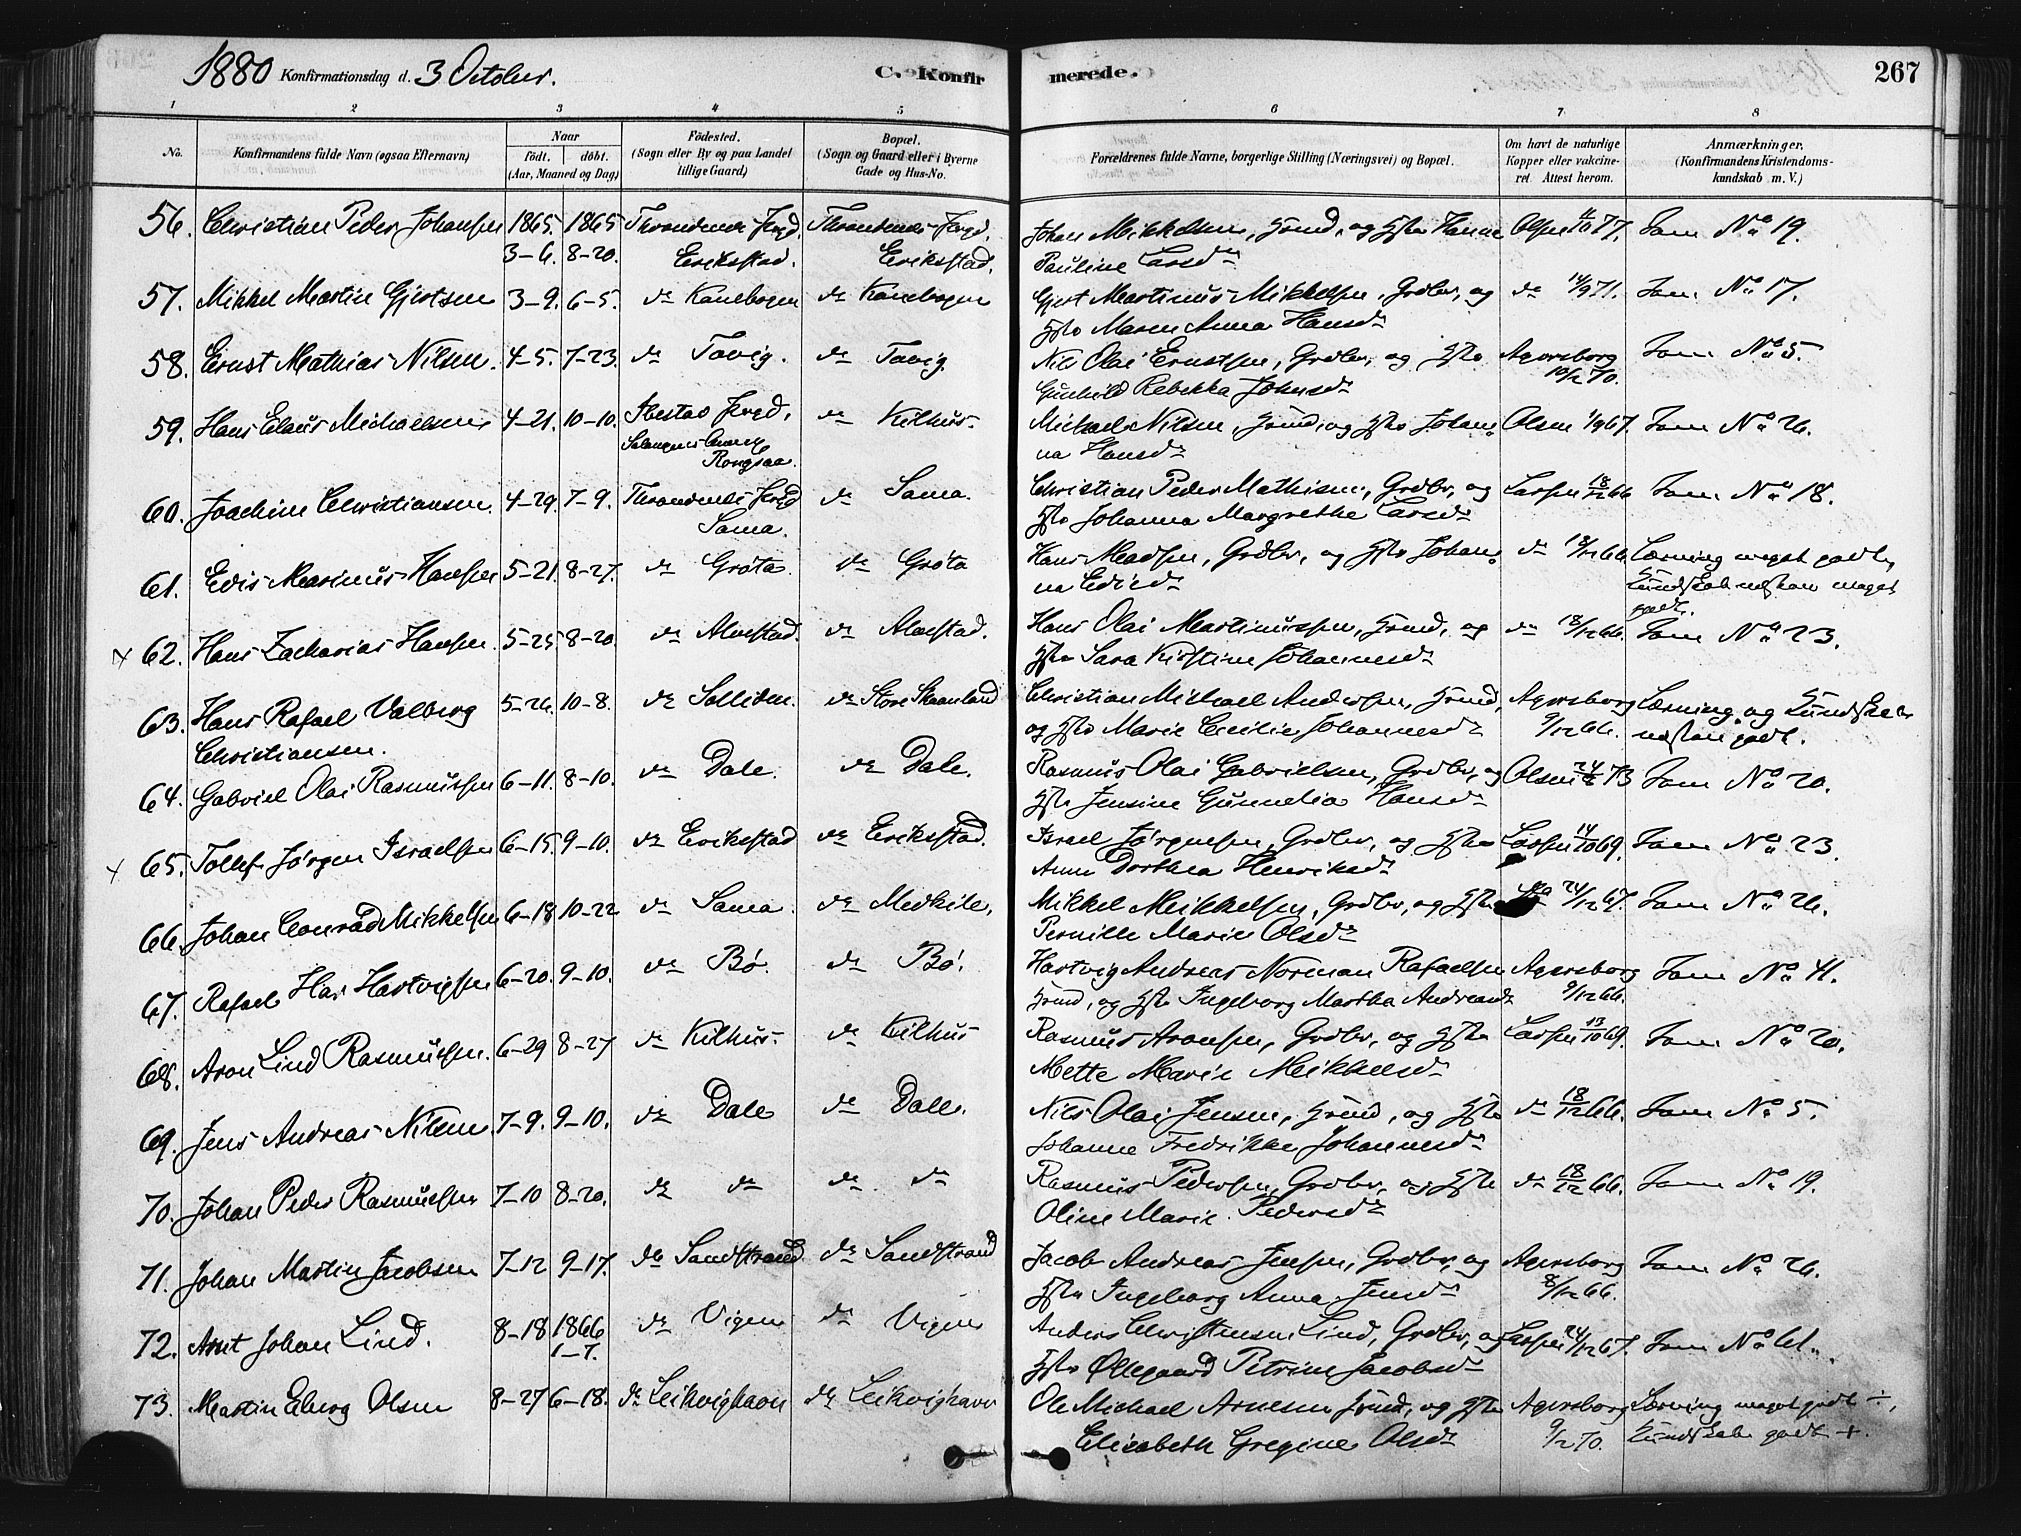 1880 Konfirmationsdag d. 3 October.
C. Konfirmerede.
267
1 2 3 4 5 6 7 8
No.
Konfirmandens fulde Navn (ogsaa Efternavn)
Naar
födt. döbt.
(Aar, Maaned og Dag)
Födested.
(Sogn eller By og paa Landet
tillige Gaard)
Bopæl.
(Sogn og Gaard eller i Byerne
Gade og Hus-No.
Forældrenes fulde Navne, borgerlige Stilling (Næringsvei) og Bopæl.
Om havt de naturlige
Kopper eller vakcine-
ret Attest herom.
Anmærkninger.
(Konfirmandens Kristendoms-
kundskab m. V.)
56. Christian Peder Johansen 1865. 1865 Throndenes Prgd. Throndenes Prgd. Johan Mikkelsen, Hmd. og Hst. Hanne Olsen 77. Som No 19.
3-6. 8-20. Erikstad. Erikstad. Pauline Larsdr
57. Mikkel Martin Gjertsen 3-9. 6-5. do Kanebogen do Kanebogen Gjert Martinus Mikkelsen, Grdbr, og do 14/9 71. Som No 17.
Hst. Maren Anna Hansdr
58. Ernst Mathias Nilsen. 4-5. 7-23. do Tovig. do Tovig. Nils Olai Ernstsen, Grdbr, og Hst. Agersborg Som No 5.
Gunhild Rebekka Johnsdr 10/12 70.
59. Hans Elæus Michaelsen 4-21. 10-10. Ibestad Prgd, do Kilhus. Michael Nilsen, Hmd. og Hst. Johan- Olsen 1/9 67. Som No 26.
Salangens
na Hansdr
60. Joachim Christiansen 4-29. 7-9. Throndenes Prgd do Sama. Christian Peder Mathisen, Grdbr, og Larsen 18/12 66. Som No 18.
Sama. Hst. Johanna Margrethe Larsdr
61. Edis Marinus Hansen 5-21. 8-27. do Grøta. do Grøta Hans Madsen, Grdbr, og Hst. Johan- do 18/12 66. Læsning meget godt,
na Edisdr Kundskab næsten meget
godt.
x 62. Hans Zacharias Hansen. 5-25 8-20. do Alvestad. do Alvestad. Hans Olai Martinussen, Hmd, og do 18/12 66. Som No 23.
Hst. Sara Kirstine Johannesdr
63. Hans Rafael Valberg 5-26. 10-8. do Solliden. do Store Skaanland Christian Michael Andersen, Hmd, Agersborg Læsning og Kundskab
Christiansen. og Hst. Marie Cecilie Johannesdr 9/12 66. næsten godt.
64. Gabriel Olai Rasmussen 6-11. 8-10. do Dale. do Dale. Rasmus Olai Gabrielsen, Grdbr, og Olsen 73 Som No 20.
Hst. Jensine Gunnelia Hansdr
x 65. Tollef Jørgen Israelsen 6-15. 9-10. do Erikstad do Erikstad. Israel Jørgensen, Grdbr, og Hst. Larsen 14/10 69. Som No 23.
Anne Dorthea Henriksdr
66. Johan Conrad Mikkelsen 6-18 10-22 do Sama. do Medkile. Mikkel Mikkelsen, Grdbr, og Hst. 24/12 67. Som No 26.
Pernille Marie Olsdr
67. Rafael Hartvigsen 6-20. 9-10. do Bø. do Bø. Hartvig Andreas Norman Rafaelsen Agersborg Som No 41.
Hmd, og Hst. Ingeborg Martha Andreasdr 9/12 66.
68. Aron Lind Rasmussen. 6-29 8-27 do Kilhus. do Kilhus Rasmus Aronsen, Grdbr, og Hst. Larsen 13/10 69. Som No 20.
Mette Marie Mikkelsdr
69. Jens Andreas Nilsen. 7-9. 9-10. do Dale do Dale. Nils Olai Jensen, Hmd, og Hst. do 18/12 66. Som No 5.
Johanne Fredrikke Johannesdr
70. Johan Peder Rasmussen 7-10 8-20. do do do do Rasmus Pedersen, Grdbr, og Hst. do 18/12 66. Som No 19.
Oline Marie Pedersdr
71. Johan Martin Jacobsen 7-12 9-17. do Sandstrand do Sandstrand Jacob Andreas Jensen, Grdbr, og Agersborg Som No 26.
Hst. Ingeborg Anna Jensdr 8/12 66.
72. Arnt Johan Lind. 8-18 1866 1-7. do Vigen do Vigen Anders Christensen Lind, Grdbr, og Larsen 24/12 67. Som No 61.
Hst. Ollegaard Petrine Jacobsdr
73. Martin Eberg Olsen 8-27 6-18. do Leikvighavn do Leikvighavn Ole Michael Arnesen Hmd, og Hst. Agersborg Læsning meget godt ÷,
Elisabeth Gregine Olsdr 9/12 70. Kundskab godt +.